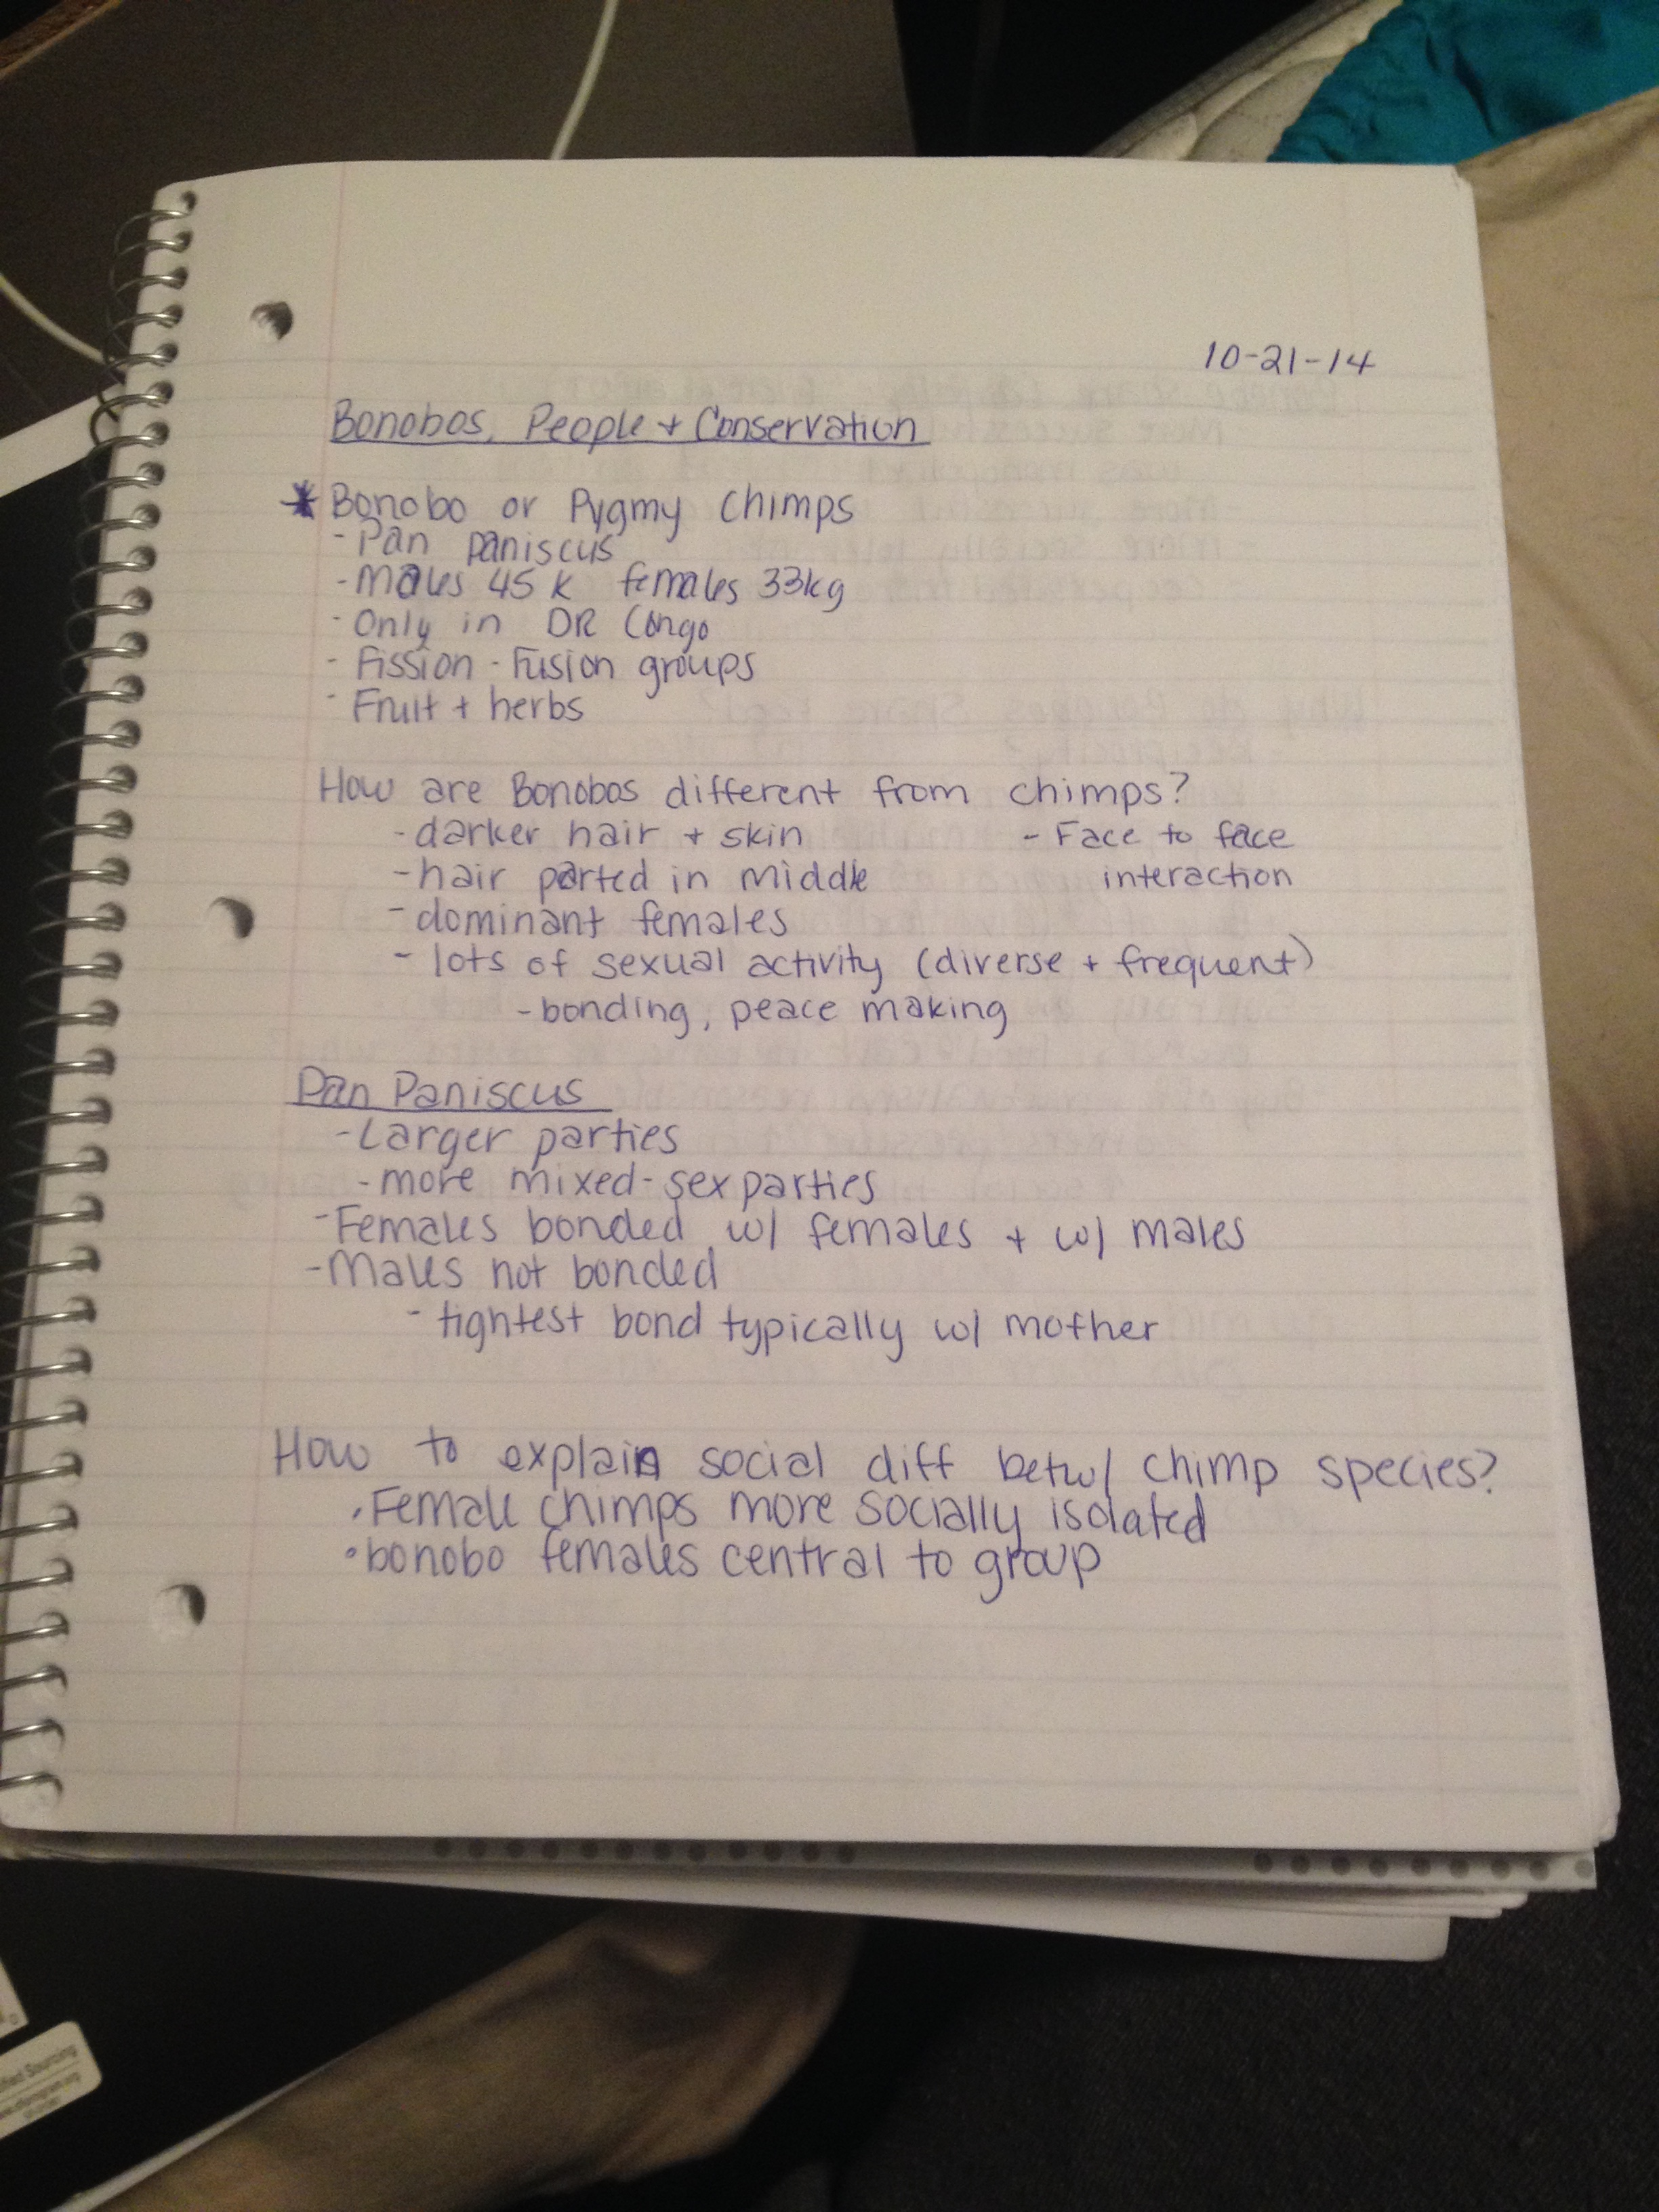 10-21-14
Bonobos, People + Conservation
* Bonobo or Pygmy Chimps
- Pan paniscus
- Males 45 K females 33kg
- Only in DR Congo
- Fission - Fusion groups
- Fruit + herbs
How are Bonobos different from chimps?
- darker hair + skin - Face to face
- hair parted in middle interaction
- dominant females
- lots of sexual activity (diverse + frequent)
- bonding, peace making
Pan Paniscus
- Larger parties
- more mixed-sex parties
- Females bonded w/ females + w/ males
- Males not bonded
- tightest bond typically w/ mother
How to explain social diff betw/ chimp species?
• Female chimps more socially isolated
• bonobo females central to group
Sourcing